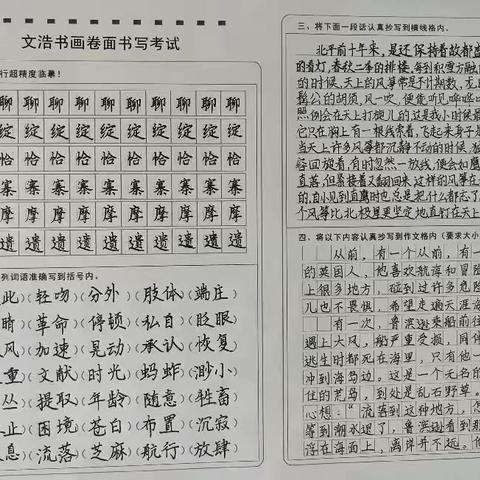 文浩书画卷面书写考试
行超精度临摹！
聊 聊 聊 聊 聊 聊 聊 聊 聊
绽 绽 绽 绽 绽 绽 绽 绽 绽
恰 恰 恰 恰 恰 恰 恰 恰 恰
寨 寨 寨 寨 寨 寨 寨 寨 寨
摩 摩 摩 摩 摩 摩 摩 摩 摩
遗 遗 遗 遗 遗 遗 遗 遗 遗
列词语准确写到括号内。
此）（轻吻）（分外）（肢体）（端庄
晴）（革命）（停顿）（私自）（眨眼
风）（加速）（晃动）（承认）（恢复
重）（文献）（时光）（蚂蚱）（渺小
丛）（提取）（年龄）（随意）（牲畜
止）（困境）（苍白）（布置）（沉寂
息）（流落）（芝麻）（航行）（放肆
三、将下面一段话认真抄写到横线格内。
北平前十年来，是还保持着故都
的看灯，春秋二季的排楼，每到积雪方融
的时候，天上的风筝常是不计期数，龙
髯公的胡须，风一吹，便能听见哗哗
照例会在天上打旋儿的这是我小时候最
它只在胸上有一根线索着，飞起来身子是
当天上许多风筝都沉静不动的时候，
容回旋着，有时忽然一放线，便会如鹰
直落，但紧接着又翻回来，这样的风筝在
的，自小见到直鹰时也总是把什么都忘了
个风筝比北极星更坚定地直钉在天上
四、将以下内容认真抄写到作文格内（要求大小
从前，有一个从前，有一
的英国人，他喜欢航海和冒险
上很多地方，碰到过许多危险
儿也不畏惧，希望走遍天涯海
有一次，鲁滨逊乘船前往
遇上大风，船严重受损，同伴
逃生时都死在海里，只有他一
冲到海岛边。这是一个无名的
住的荒岛，到处是乱石野草。
心想：“流落到这种地方，怎
等到潮水退了，鲁滨逊看到那
浮在海面上，离岸并不远。他